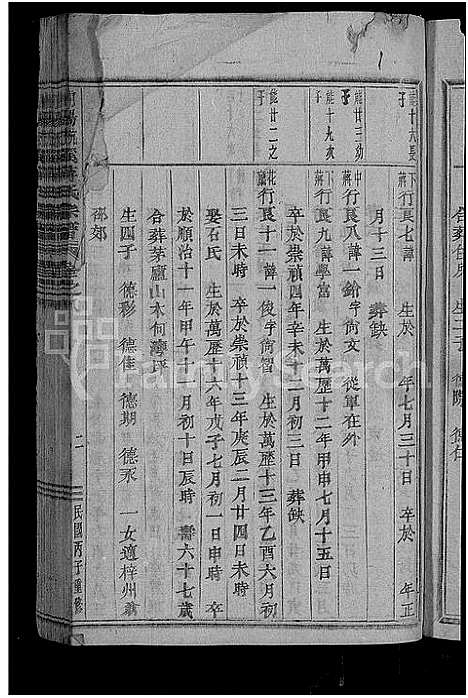 能十六長子
下蔣行良七諱　生於　年七月三十日　卒於　年正
月十三日　葬缺
能廿三幼子
中蔣行良八諱一鉛字尚文　從軍在外
能十九次子
下蔣行良九諱學富　生於萬歷十二年甲申七月十五日
卒於崇禎四年辛未十二月初三日　葬缺
能廿二之子
行良十一諱一俊字尚智　生於萬歷十三年乙酉六月初
三日未時　卒於崇禎十三年庚辰二月廿四日未時
娶石氏　生於萬歷十六年戊子七月初一日申時　卒
於順治十一年甲午十一月初十日辰時　壽六十七歲
合葬茅廬山木杓灣坪
生四子　德彩　德佳　德期　德永　一女適梓州翁
邵郊
氏宗譜
二
民國丙子重修
FamilySearch